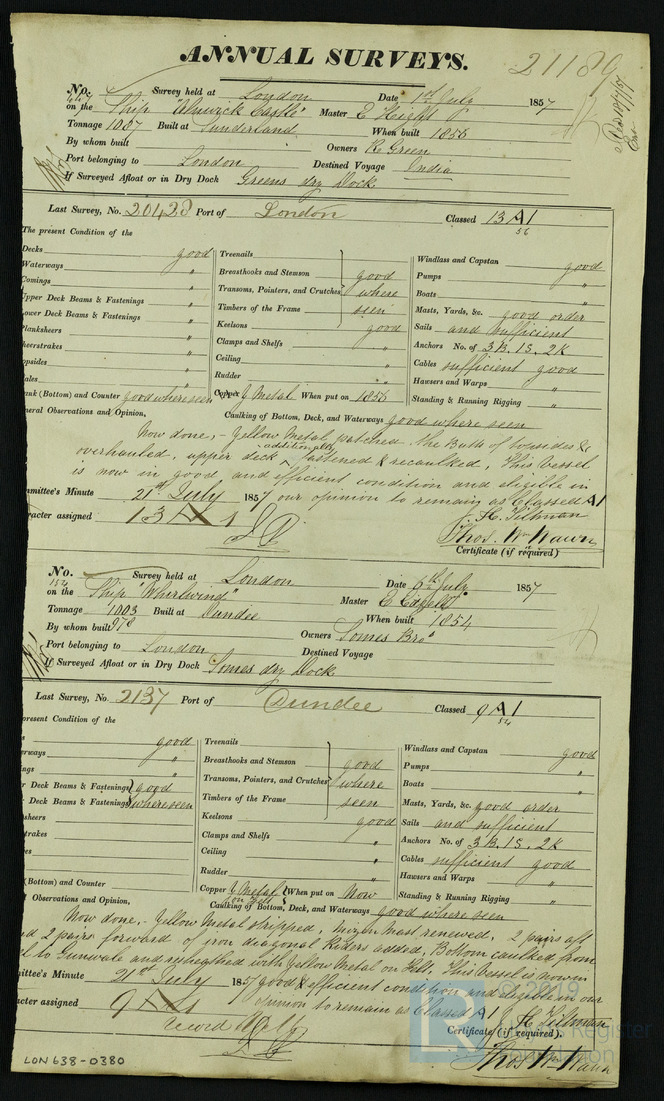 ANNUAL SURVEYS.
21189
No. Survey held at London Date 1st July 1857
on the Ship "Alnwick Castle" Master E Hight
Tonnage 1087 Built at Sunderland When built 1856
By whom built Owners R Green
Port belonging to London Destined Voyage India
If Surveyed Afloat or in Dry Dock Greens dry Dock
Last Survey, No. 20428 Port of London Classed 13 A1
56
The present Condition of the
Decks good
Waterways "
Comings "
Upper Deck Beams & Fastenings "
Lower Deck Beams & Fastenings "
Planksheers "
heerstrakes "
opsides "
ales "
ank (Bottom) and Counter good where seen
Treenails
Breasthooks and Stemson good
Transoms, Pointers, and Crutches where
Timbers of the Frame seen
Keelsons good
Clamps and Shelfs "
Ceiling "
Rudder "
Copper Y Metal When put on 1856
Windlass and Capstan good
Pumps "
Boats "
Masts, Yards, &c. good order
Sails and sufficient
Anchors No. of 3B. 1S. 2K
Cables sufficient good
Hawsers and Warps "
Standing & Running Rigging "
neral Observations and Opinion, Caulking of Bottom, Deck, and Waterways good where seen
Now done,- Yellow Metal patched. the Butts of topsides &c
overhauled, upper deck additionally fastened & recaulked. This Vessel
is now in good and efficient condition and eligible in
mmittee's Minute 21st July 1857 our opinion to remain as Classed A1
racter assigned 13 A 1 J. H. Tilman
Thos. Wm Wawn
Certificate (if required)
No. Survey held at London Date 6th July 1857
on the Ship "Whirlwind" Master E
Tonnage 1003 Built at Dundee When built 1854
By whom built 978 Owners Somes Bros
Port belonging to London Destined Voyage
If Surveyed Afloat or in Dry Dock Somes dry Dock
Last Survey, No. 2137 Port of Dundee Classed 9 A1
54
present Condition of the
s good
rways "
ngs "
r Deck Beams & Fastenings good
r Deck Beams & Fastenings where seen
sheers
trakes
es
(Bottom) and Counter
Treenails
Breasthooks and Stemson good
Transoms, Pointers, and Crutches where
Timbers of the Frame seen
Keelsons good
Clamps and Shelfs "
Ceiling "
Rudder "
Copper Y Metal on Felt When put on Now
Windlass and Capstan good
Pumps "
Boats "
Masts, Yards, &c. good order
Sails and sufficient
Anchors No. of 3B. 1S. 2K
Cables sufficient good
Hawsers and Warps "
Standing & Running Rigging "
l Observations and Opinion, Caulking of Bottom, Deck, and Waterways good where seen
Now done,- Yellow Metal stripped, Mizen Mast renewed, 2 pairs aft
nd 2 pairs forward of iron diagonal Riders added, Bottom caulked from
l to Gunwale and resheathed with Yellow Metal on Felt. This Vessel is now in
mittee's Minute 21st July 1857 good & efficient condition and eligible in our
acter assigned 9 A 1 opinion to remain as Classed A1
Certificate (if required). J. H. Tilman
Thos Wm Wawn
LON638-0380
© 2019
Lloyd's Register
Foundation